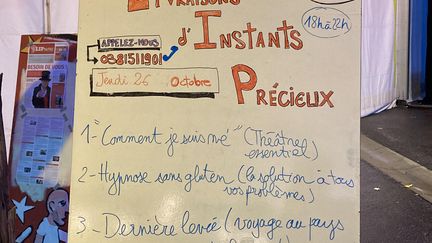 LIVRAISONS
18h à 22h
d'INSTANTS
APPELEZ-NOUS
0381511901
Jeudi 26 Octobre
PRÉCIEUX
BESOIN DE VOUS !
1- "Comment je suis né" (Théâtre
essentiel)
2- Hypnose sans gluten (la solution à tous
vos problèmes)
3- Dernière levée (voyage au pays